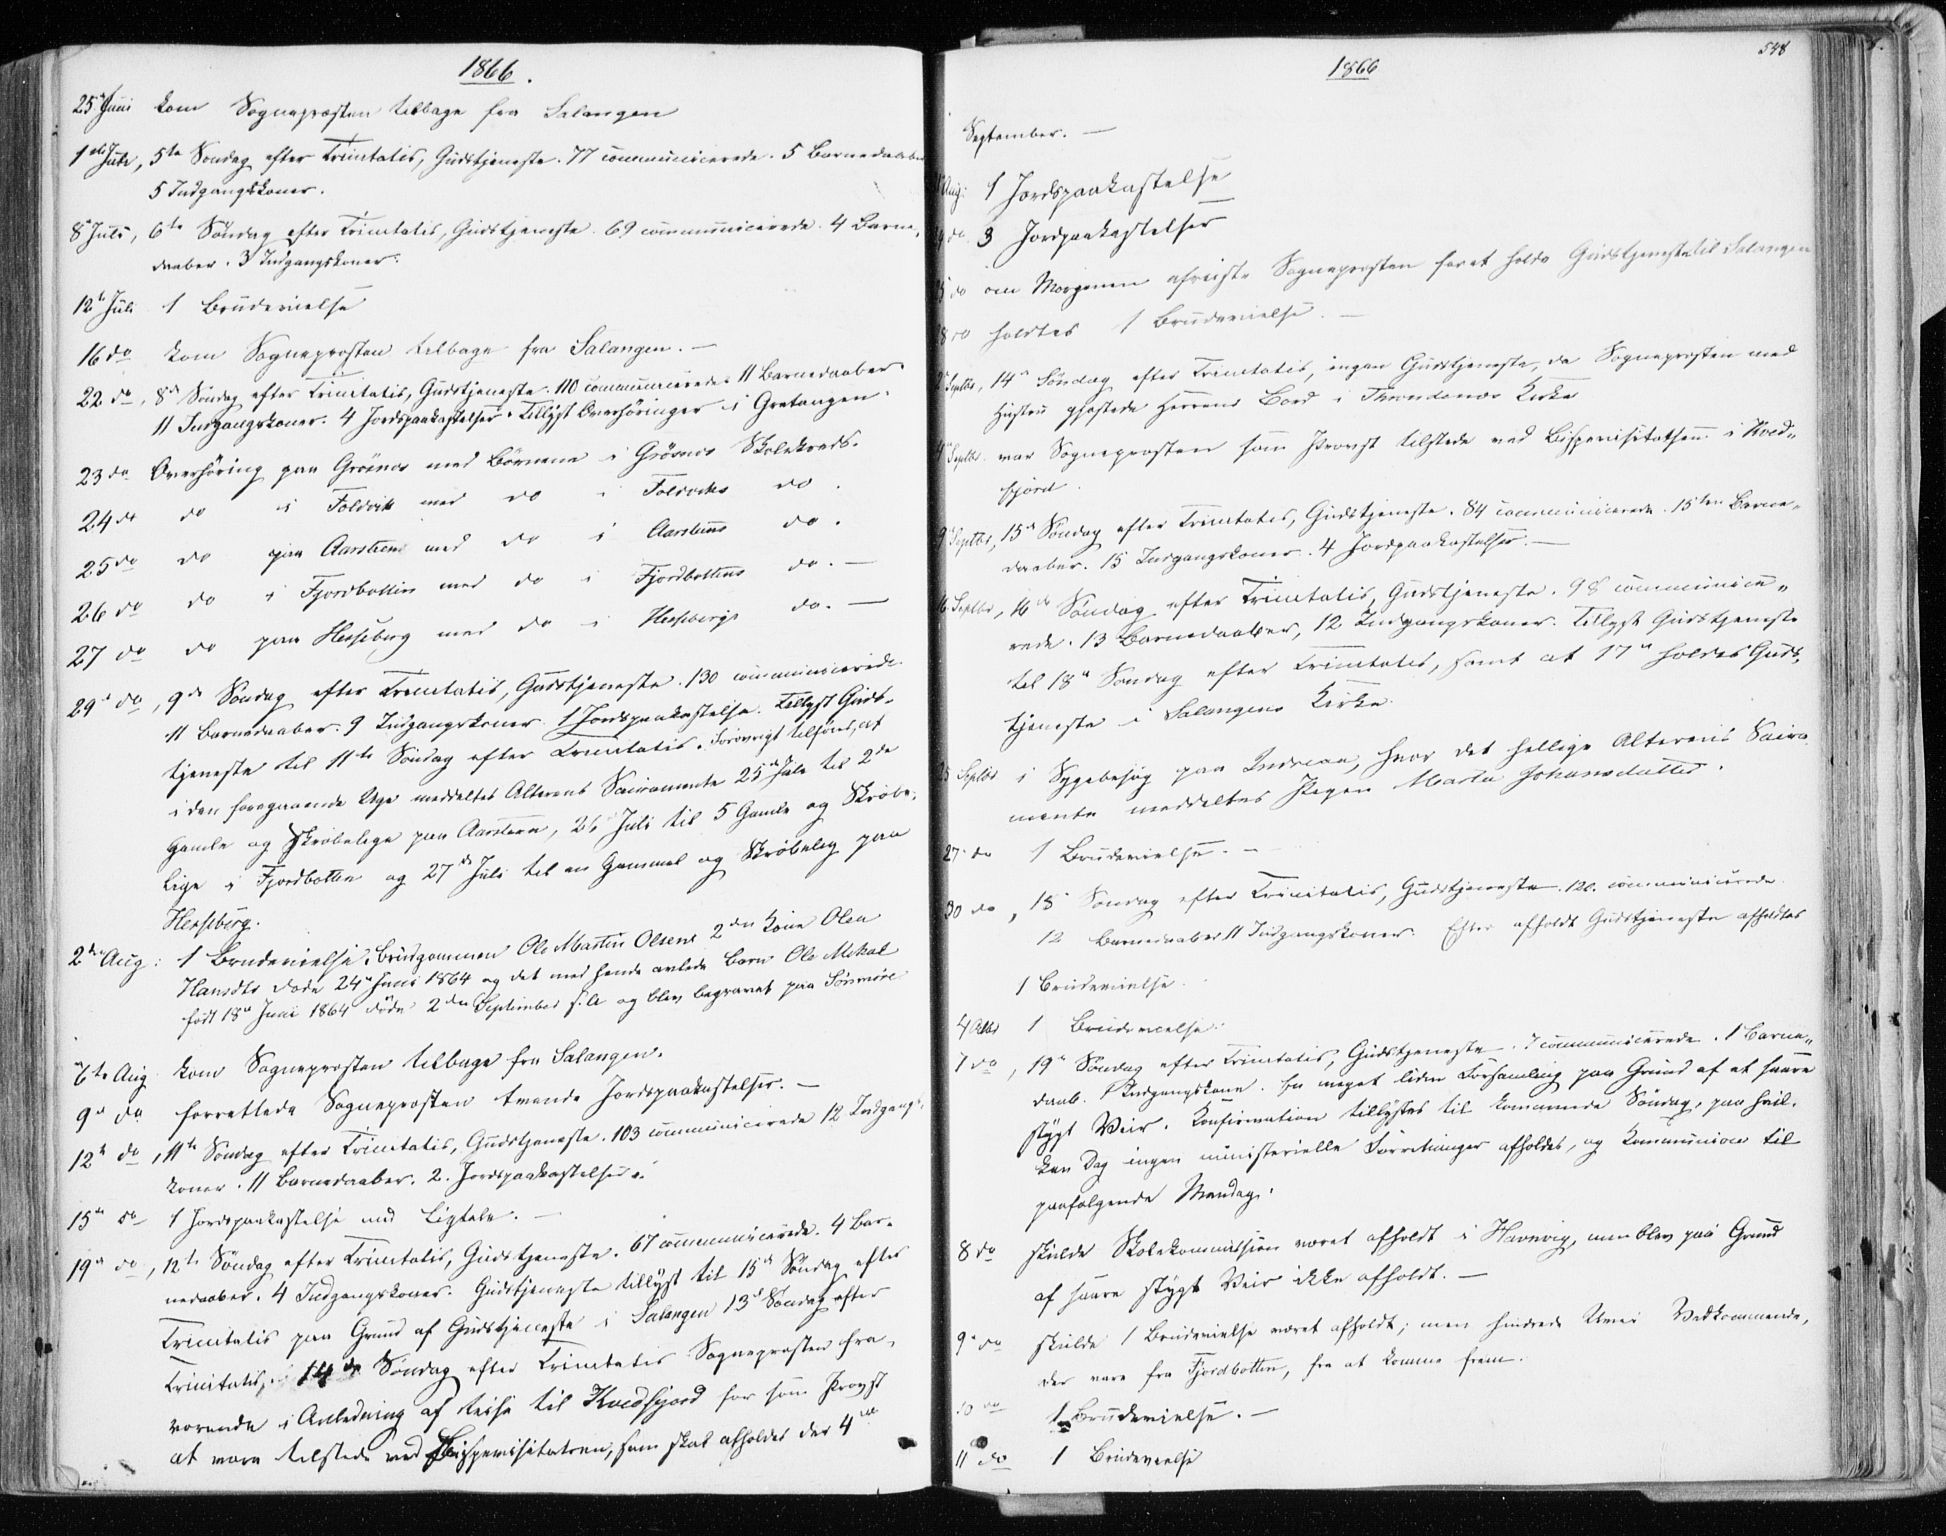 1866.
25d Juni kom Sognepræsten tilbage fra Salangen
1ste Juli, 5te Søndag efter Trinitatis, Gudstjeneste. 77 communicerede. 5 Barnedaaber
5 Indgangskoner.
8d Juli, 6te Søndag efter Trinitatis, Gudstjeneste. 69 communicerede. 4 Barne,
daaber. 3 Indgangskoner.
12te Juli 1 Brudevielse
16 do kom Sognepresten tilbage fra Salangen. —
22 do, 8de Søndag efter Trinitatis, Gudstjeneste. 110 communicerede 11 Barnedaaber
11 Indgangskoner. 4 Jordspaakastelser. Tillyst Overhøringer i Gratangen.
23 do Overhøring paa Grösnes med Börnene i Grösnes Skolekreds.
24 do do i Foldvik med do i Foldviks do.
25 do do paa Aarsteen med do i Aarsteens do.
26 do do i Fjordbotten med do i Fjordbottens do. —
27 do do paa Hesseberg med do i Hessebergs do. —
29d do, 9de Søndag efter Trinitatis, Gudstjeneste. 130 communicerede.
11 Barnedaaber. 9 Indgangskoner. 1 Jordspaakastelse. Tillyst Guds-
tjeneste til 11te Søndag efter Trinitatis. Forøvrigt tilføies, at
i den foregaaende Uge meddeltes Alterens Sacramente 25d Juli til 2de
Gamle og Skrøbelige paa Aarsteen, 26 Juli til 5 Gamle og Skrøbe-
lige i Fjordbotten og 27de Juli til en Gammel og Skrøbelig paa
Hesseberg.
2den Aug: 1 Brudevielse. Brudgommen Ole Martin Olsens 2den Kone Olea
Hansdtr døde 24d Juni 1864 og det med hende avlede Barn Ole Mikal
født 18d Juni 1864 døde 2den September s. A. og blev begravet paa
6te Aug. kom Sognepresten tilbage fra Salangen.
9d do forrettede Sognepresten tvende Jordspaakastelser. —
12te do, 11te Søndag efter Trinitatis, Gudstjeneste. 103 communicerede 12 Indgangs-
koner. 11 Barnedaaber. 2. Jordspaakastelser.
15de do 1 Jordspaakastelse med Ligtale. —
19d do, 12te Søndag efter Trinitatis, Gudstjeneste. 67 communicerede. 4 Bar-
nedaaber. 4 Indgangskoner. Gudstjeneste tillyst til 15de Søndag efter
Trinitatis paa Grund af Gudstjeneste i Salangen 13d Søndag efter
Trinitatis, 14de Søndag efter Trinitatis Sognepresten fra-
værende i Anledning af Reise til Kvedfjord for som Provst
at være tilstede ved Bispevisitatsen, som skal afholdes der 4de
1866
548
September. —
Aug: 1 Jordspaakastelse
do 3 Jordpaakastelser
do om Morgenen afreiste Sognepresten for at holde Gudstjeneste til Salangen
do holdtes 1 Brudevielse. —
2d Septbr, 14d Søndag efter Trinitatis, ingen Gudstjeneste, da Sognepresten med
Hustru gjæstede Herrens Bord i Throndenæs Kirke
4d Septbr. var Sognepresten som Provst tilstede ved Bispevisitatsen i Kved-
fjord.
9d Septbr, 15d Søndag efter Trinitatis, Gudstjeneste. 84 communicerede. 15ten Barne-
daaber. 15 Indgangskoner. 4 Jordpaakastelser. —
16 Septbr, 16de Søndag efter Trinitatis, Gudstjeneste. 98 communice-
rede. 13 Barnedaaber, 12 Indgangskoner. Tillyst Gudstjeneste
til 18d Søndag efter Trinitatis, samt at 17d holdes Guds-
tjeneste i Salangens Kirke.
Septbr i Sygebesøg paa Indreaa, hvor det hellige Alterens Sacra-
mente meddeltes Pigen Marta Johansdatter.
27d do 1 Brudevielse. —
30 do, 18d Søndag efter Trinitatis, Gudstjeneste. 120. communicerede
12 Barnedaaber 11 Indgangskoner. Efter afholdt Gudstjeneste afholdtes
1 Brudevielse.
4 Octbr 1 Brudevielse.
7 do, 19d Søndag efter Trinitatis, Gudstjeneste. 7 communicerede. 1 Barne-
daab. 1 Indgangskone. En meget liden Forsamling paa Grund af et saare
stygt Veir. Konfirmation tillystes til kommende Søndag, paa hvil-
ken Dag ingen ministerielle Forretninger afholdes, og Kommunion til
paafølgende Mandag.
8 do skulde Skolekommission været afholdt i Havnvig, men blev paa Grund
af saare stygt Veir ikke afholdt. —
9d do skulde 1 Brudevielse været afholdt; men hindrede Uveir Vedkommende,
der vare fra Fjordbotten, fra at komme frem.
10 do 1 Brudevielse. —
11 do 1 Brudevielse